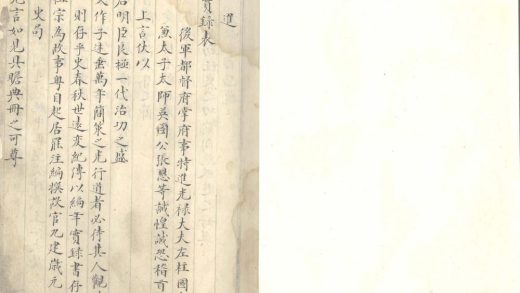 進
實錄表
後軍都督府掌府事特進光祿大夫左柱國
兼太子太師英國公張懋等誠惶誠恐稽首
上言伏以
君明臣良極一代治功之盛
父作子述垂萬年簡策之光行道者必待其人觀
則存乎史春秋世遠變紀傳以編年實錄書行
宗為故事粵自起居罷注編撰設官凡建歲元
史局
言如見具瞻典冊之可尊